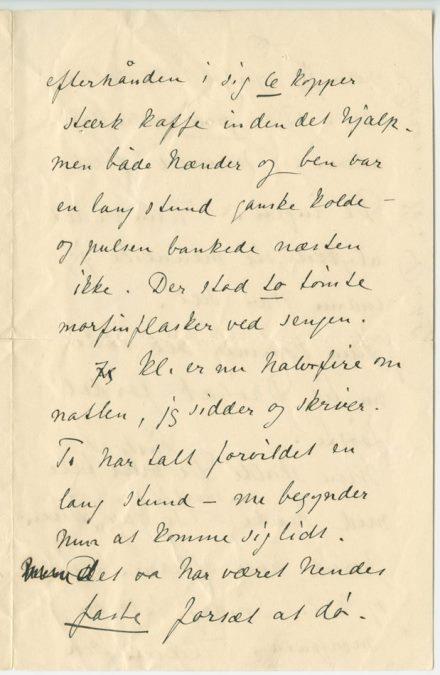 efterhånden i sig 6 kopper
stærk kaffe inden det hjalp.
men både hænder og ben var
en lang stund ganske kolde –
og pulsen bankede næsten
ikke. Der stod to tømte
morfinflasker ved sengen.
kl. er nu halvfire om
natten, jg sidder og skriver.
To har talt forvildet en
lang stund – nu begynder
hun at komme sig lidt.
Det va har været hendes
faste forsæt at dø.